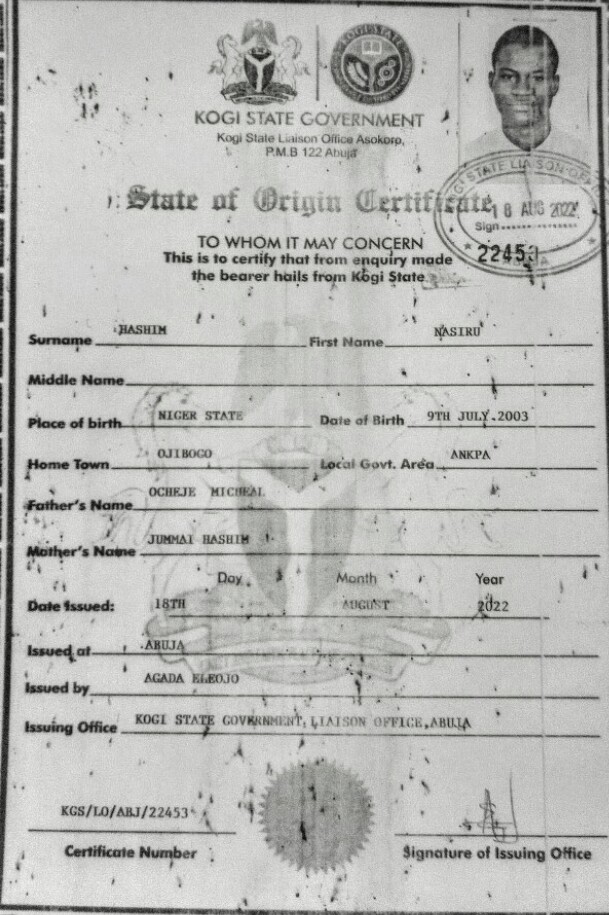 KOGI STATE
KOGI STATE GOVERNMENT
Kogi State Liaison Office Asokoro,
P.M.B 122 Abuja
State of Origin Certificate
KOGI STATE LIAISON OFFICE
18 AUG 2022
Sign
22453
ABUJA
TO WHOM IT MAY CONCERN
This is to certify that from enquiry made
the bearer hails from Kogi State
Surname HASHIM First Name NASIRU
Middle Name
Place of birth NIGER STATE Date of Birth 9TH JULY.2003
Home Town OJIBOGO Local Govt. Area ANKPA
Father's Name OCHEJE MICHEAL
Mother's Name JUMMAI HASHIM
Day Month Year
Date Issued: 18TH AUGUST 2022
Issued at ABUJA
Issued by AGADA ELEOJO
Issuing Office KOGI STATE GOVERNMENT, LIAISON OFFICE, ABUJA
KGS/LO/ABJ/22453
Certificate Number Signature of Issuing Office